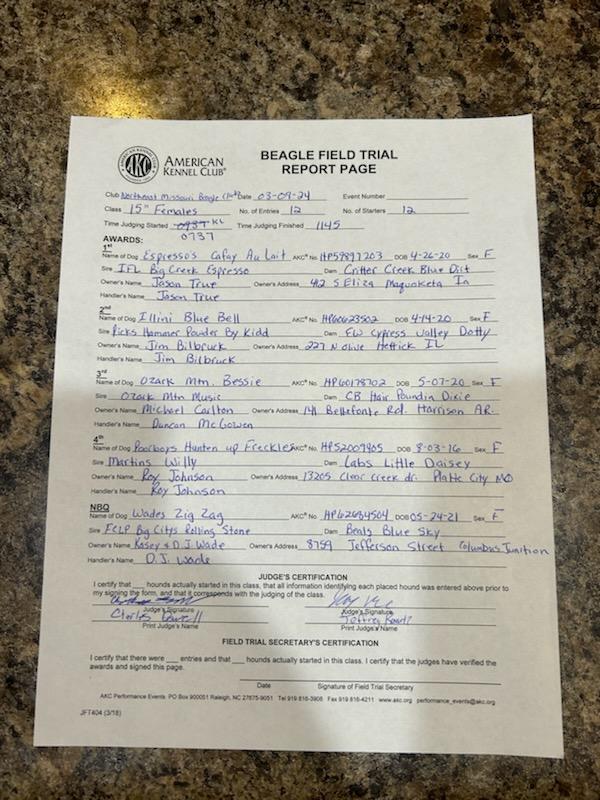 AMERICAN KENNEL CLUB®
BEAGLE FIELD TRIAL
REPORT PAGE
Club Northeast Missouri Beagle Club Date 03-09-24 Event Number
Class 15" Females No. of Entries 12 No. of Starters 12
Time Judging Started 0937 KL Time Judging Finished 1145
0737
AWARDS:
1st
Name of Dog Espresso's Cafay Au Lait AKC® No. HP59897203 DOB 4-26-20 Sex F
Sire IFL Big Creek Espresso Dam Critter Creek Blue Dirt
Owner's Name Jason True Owner's Address 412 S Eliza Maquoketa Ia
Handler's Name Jason True
2nd
Name of Dog Illini Blue Bell AKC® No. HP60623502 DOB 4-14-20 Sex F
Sire Ricks Hammer Powder By Kidd Dam EW Cypress Valley Dotty
Owner's Name Jim Bilbruck Owner's Address 227 N Olive Hettick IL
Handler's Name Jim Bilbruck
3rd
Name of Dog Ozark Mtn. Bessie AKC® No. HP60178702 DOB 5-07-20 Sex F
Sire Ozark Mtn Music Dam CB Hair Poundin Dixie
Owner's Name Michael Carlton Owner's Address 141 Bellefonte Rd. Harrison AR.
Handler's Name Duncan McGowen
4th
Name of Dog Poorboys Hunten up Freckles AKC® No. HP52009405 DOB 8-03-16 Sex F
Sire Martins Willy Dam Labs Little Daisey
Owner's Name Roy Johnson Owner's Address 13205 Clear Creek dr. Platte City MO
Handler's Name Roy Johnson
NBQ
Name of Dog Wades Zig Zag AKC® No. HP62684504 DOB 05-24-21 Sex F
Sire FCLP Big Citys Rolling Stone Dam Beals Blue Sky
Owner's Name Kasey & D.J. Wade Owner's Address 8759 Jefferson Street Columbus Junition
Handler's Name D.J. Wade
JUDGE'S CERTIFICATION
I certify that ___ hounds actually started in this class, that all information identifying each placed hound was entered above prior to
my signing the form, and that it corresponds with the judging of the class.
Judge's Signature Judge's Signature
Charles Jeffrey
Print Judge's Name Print Judge's Name
FIELD TRIAL SECRETARY'S CERTIFICATION
I certify that there were ___ entries and that ___ hounds actually started in this class. I certify that the judges have verified the
awards and signed this page.
Date Signature of Field Trial Secretary
AKC Performance Events PO Box 900051 Raleigh, NC 27675-9051 Tel 919 816-3908 Fax 919 816-4211 www.akc.org performance_events@akc.org
JFT404 (3/18)